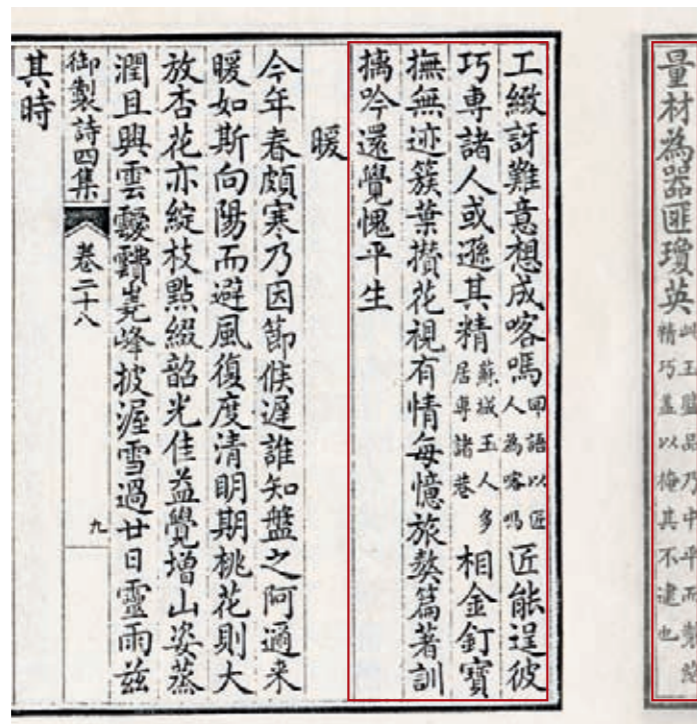 量材為器匪瓊英此玉盤品乃中平而製絶精巧蓋以掩其不逮也
工緻訝難意想成喀嗎囘語以匠人為喀嗎匠能逞彼
巧專諸人或遜其精蘇城玉人多居專諸巷相金釘寶
撫無迹簇葉攢花視有情每憶旅獒篇著訓
摛吟還覺愧平生
暖
今年春頗寒乃因節候遲誰知盤之阿適来
暖如斯向陽而避風復度清明期桃花則大
放杏花亦綻枝點綴韶光佳益覺增山姿蒸
潤且興雲靉靅嶤峰披渥雪過廿日靈雨兹
御製詩四集 卷二十八 九
其時